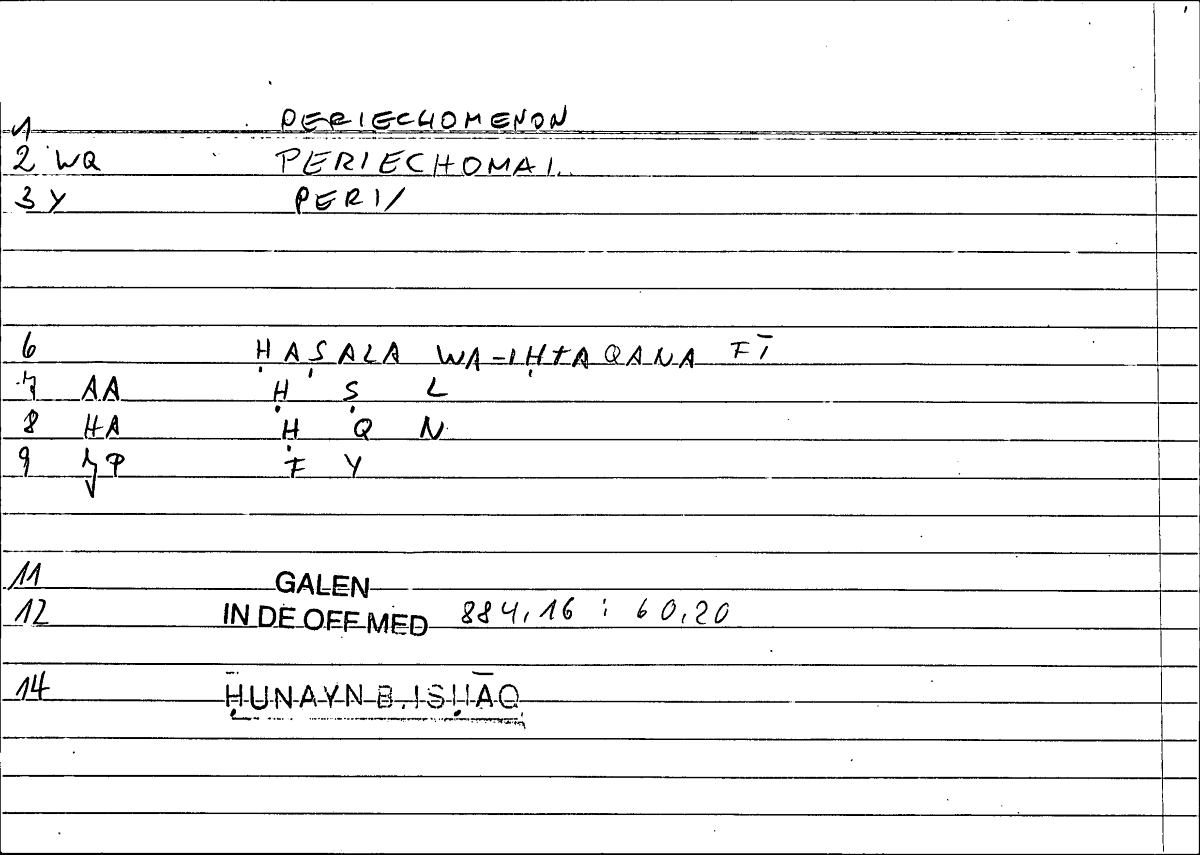 1 PERIECHOMENON
2 WQ PERIECHOMAI
3 Y PERI/
6 ḤAṢALA WA-IḤTAQANA FĪ
7 AA Ḥ Ṣ L
8 HA Ḥ Q N
9 F Y
11 GALEN
12 IN DE OFF MED 884,16 : 60,20
14 ḤUNAYN B. ISḤĀQ